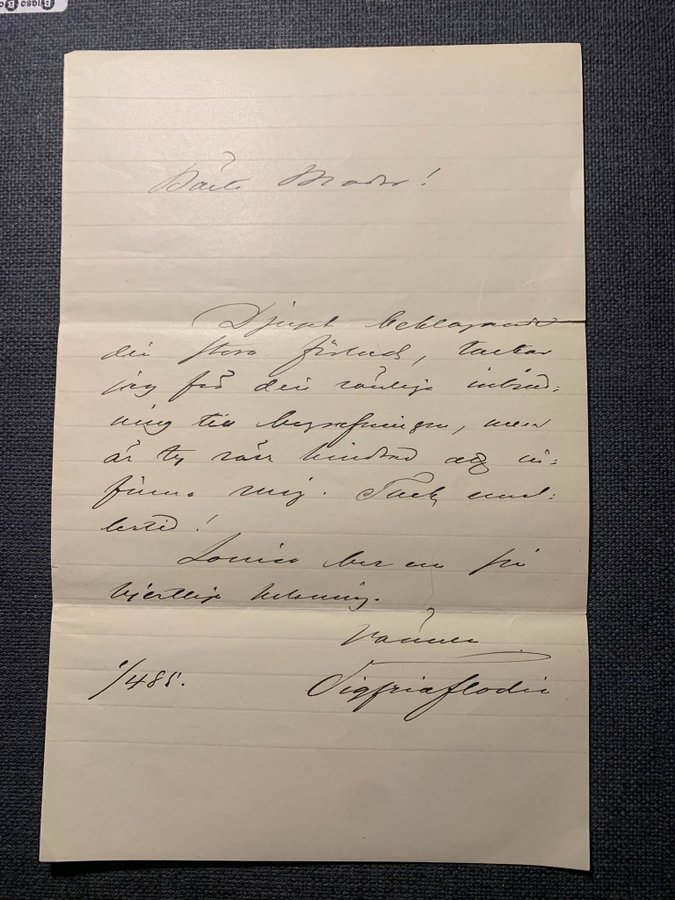 Bäste Broder!
Djupt beklagande
din stora förlust, tackar
jag för din vänliga inbjud-
ning till begrafningen, men
är ty värr hindrad att in-
finna mig. Tack emel-
lertid!
Louise ber om sin
hjertliga helsning.
Vännen
Sigfrid Flodin
1/4 85.